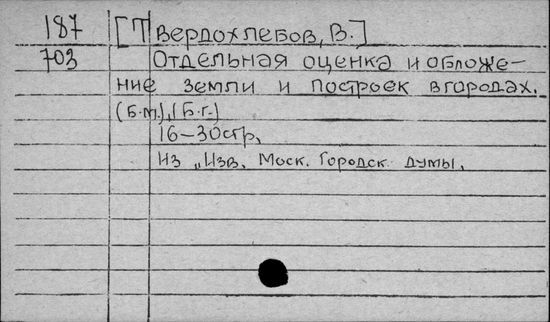 187 [Твердохлебов, В.]
703 Отдельная оценка и обложе-
ние земли и построек в городах.
(Б.м.), (Б.г.)
16-30стр,
Из „Изв. Моск. Городск. думы,